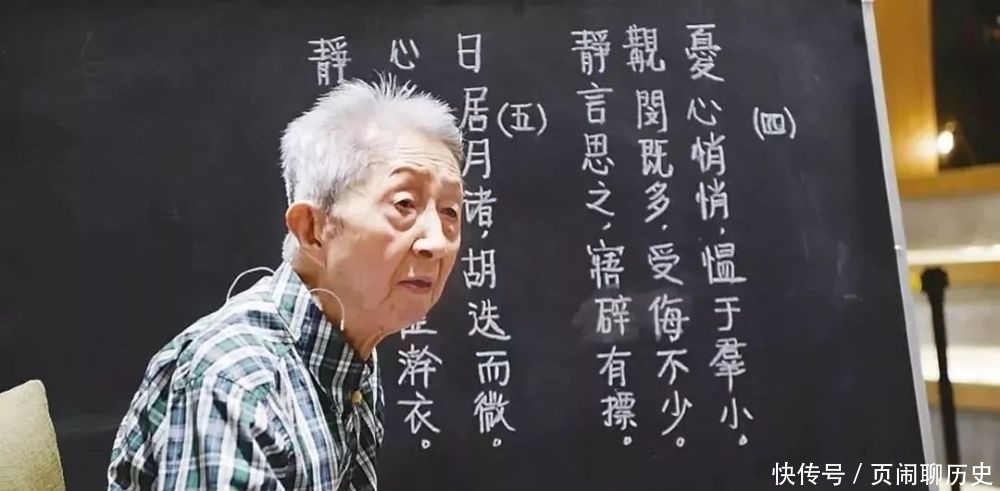 (四)
憂心悄悄,愠于羣小。
覯閔既多,受侮不少。
靜言思之,寤辟有摽。
(五)
日居月诸,胡迭而微。
心 澣衣。
靜
快传号／页闹聊历史